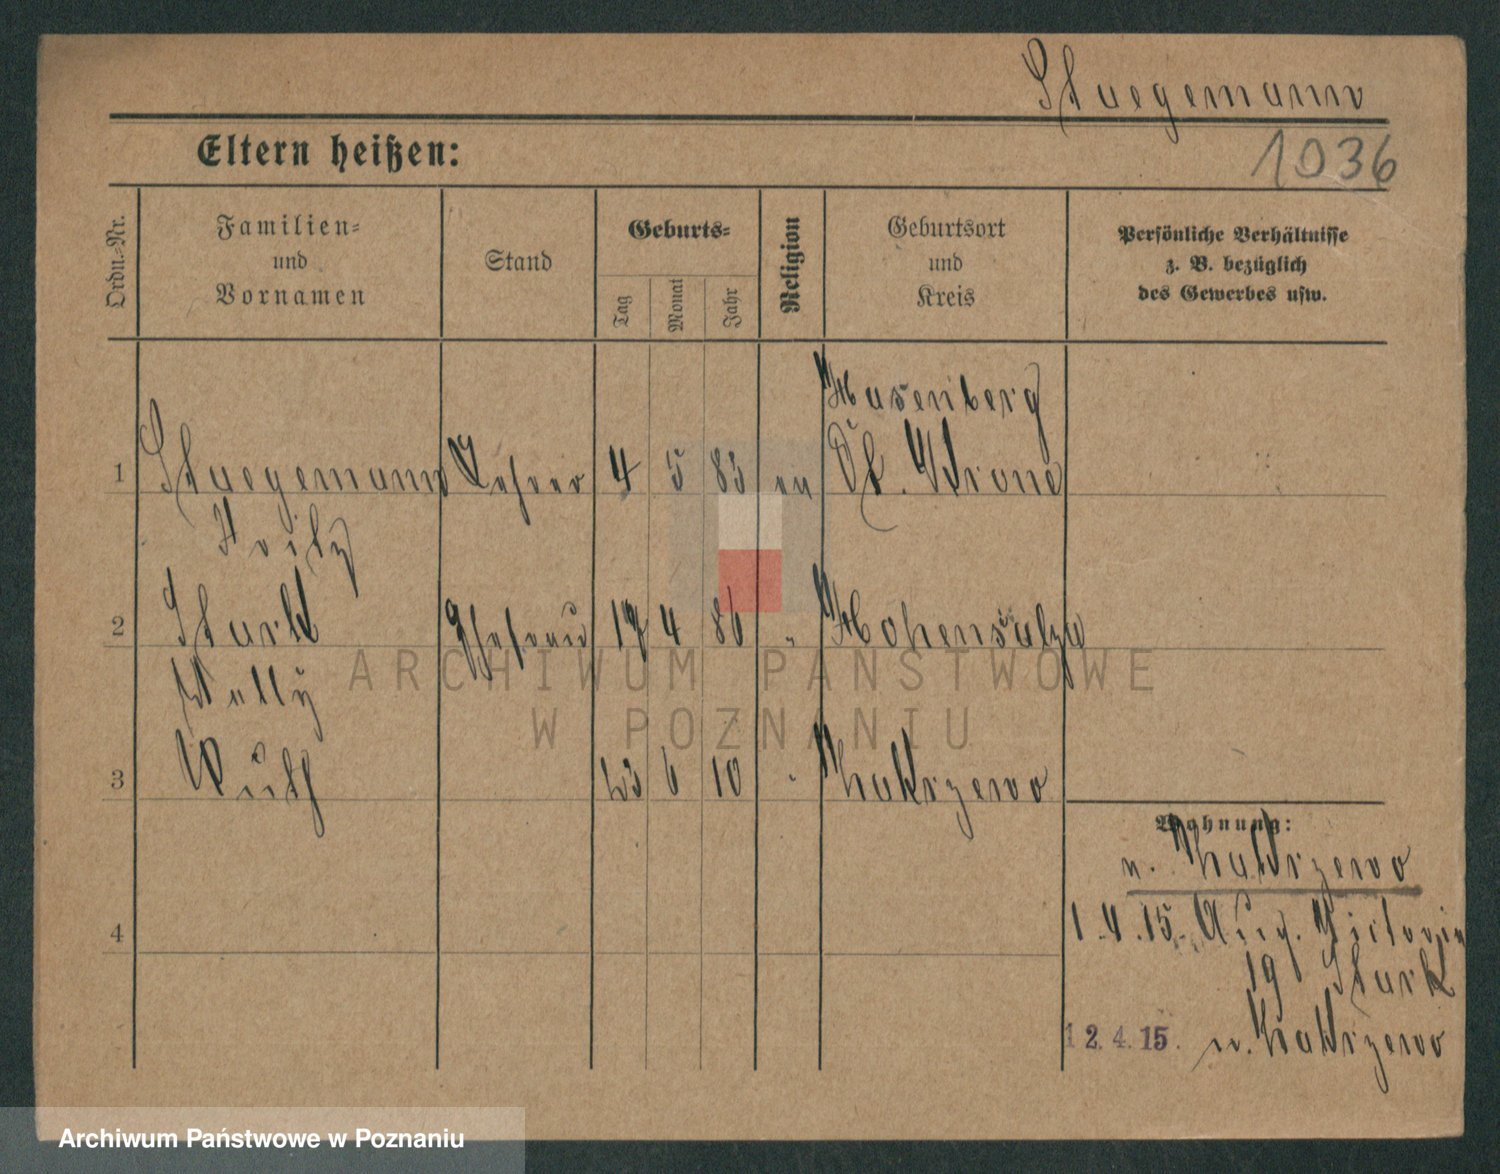 Staegemann
Eltern heißen:
1036
Ordn.-Nr.
Familien-
und
Vornamen
Stand
Geburts-
Tag
Monat
Jahr
Religion
Geburtsort
und
Kreis
Persönliche Verhältnisse
z. B. bezüglich
des Gewerbes usw.
Rosenberg
1 Staegemann Lehrer 4 5 83 ev Dt. Krone
Fritz
2 Stark Ehefrau 4 86 " Hohensalza
Welly
3 Ruth 23 6 10 " Zakrzewo
Wohnung:
n. Zakrzewo
1.4.15. Aug. Victoria
19 Stark
12.4.15. n. Zakrzewo
4
ARCHIWUM PAŃSTWOWE
W POZNANIU
Archiwum Państwowe w Poznaniu